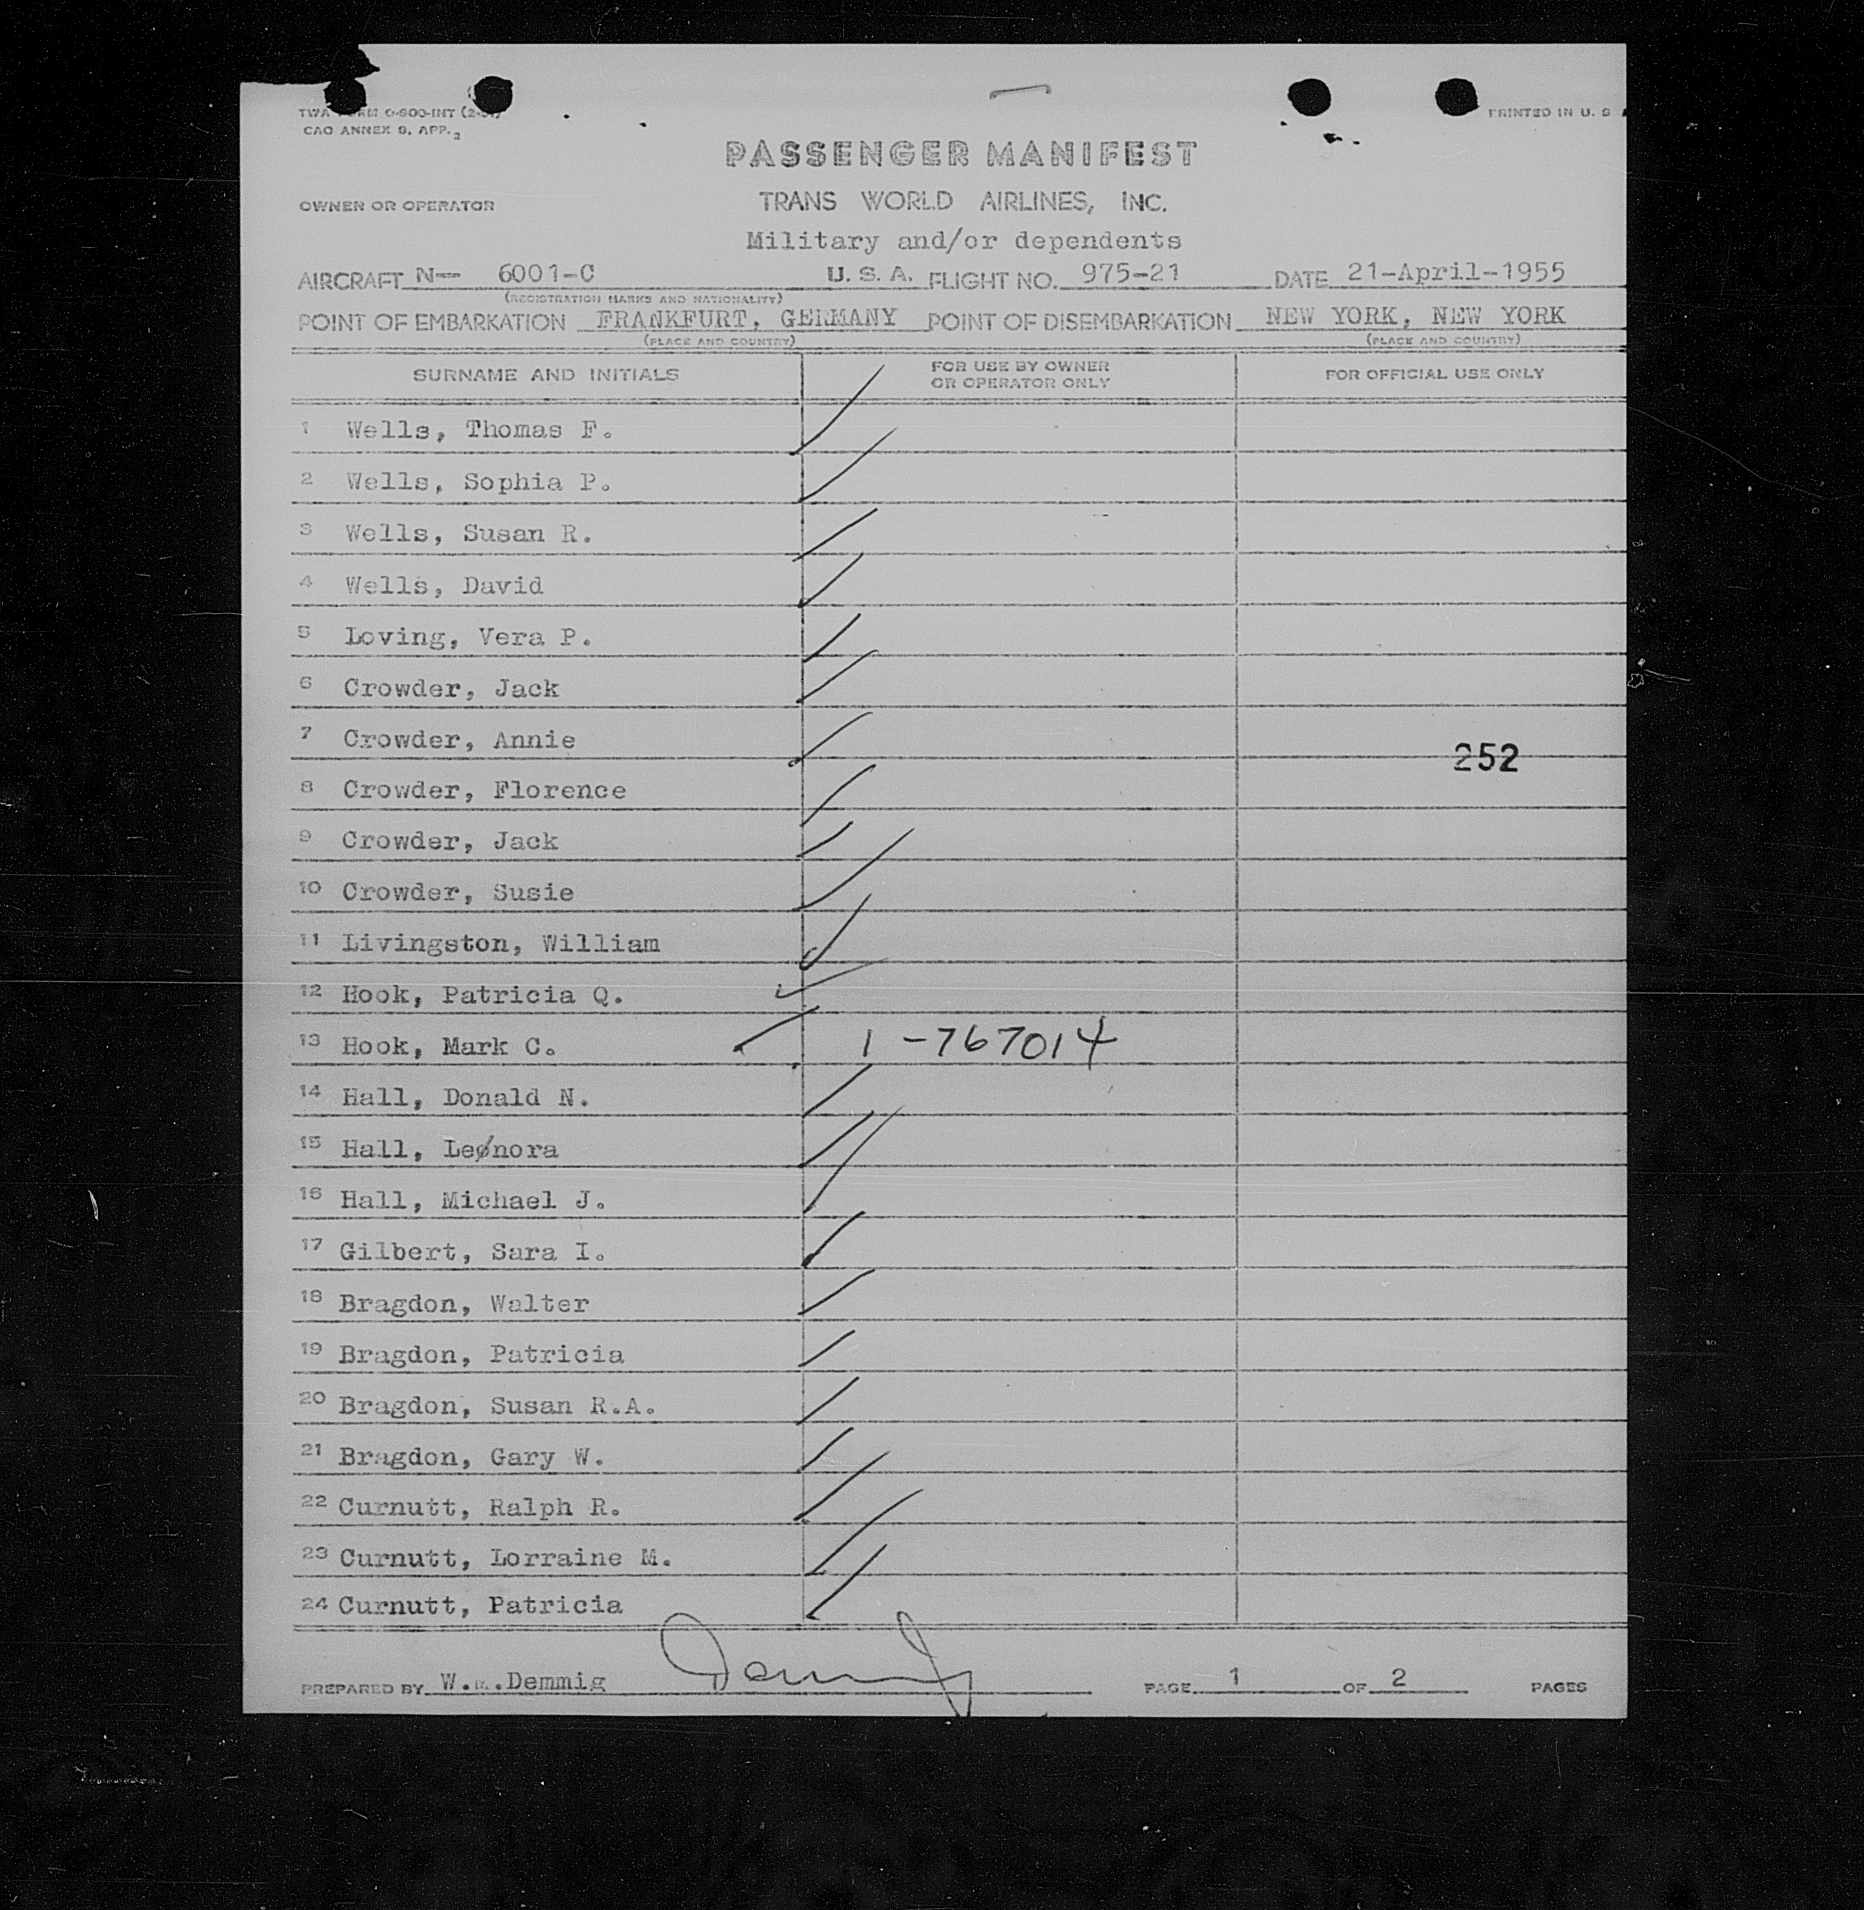 PRINTED IN U. S
CAO ANNEX 9, APP. 2
PASSENGER MANIFEST
OWNER OR OPERATOR TRANS WORLD AIRLINES, INC.
Military and/or dependents
AIRCRAFT N-- 6001-C U. S. A. FLIGHT NO. 975-21 DATE 21-April-1955
(REGISTRATION MARKS AND NATIONALITY)
POINT OF EMBARKATION FRANKFURT, GERMANY POINT OF DISEMBARKATION NEW YORK, NEW YORK
(PLACE AND COUNTRY) (PLACE AND COUNTRY)
SURNAME AND INITIALS FOR USE BY OWNER OR OPERATOR ONLY FOR OFFICIAL USE ONLY
1 Wells, Thomas F.
2 Wells, Sophia P.
3 Wells, Susan R.
4 Wells, David
5 Loving, Vera P.
6 Crowder, Jack
7 Crowder, Annie
252
8 Crowder, Florence
9 Crowder, Jack
10 Crowder, Susie
11 Livingston, William
12 Hook, Patricia Q.
13 Hook, Mark C. 1-767014
14 Hall, Donald N.
15 Hall, Leønora
16 Hall, Michael J.
17 Gilbert, Sara I.
18 Bragdon, Walter
19 Bragdon, Patricia
20 Bragdon, Susan R.A.
21 Bragdon, Gary W.
22 Curnutt, Ralph R.
23 Curnutt, Lorraine M.
24 Curnutt, Patricia
PREPARED BY W. Demmig Demmig PAGE 1 OF 2 PAGES